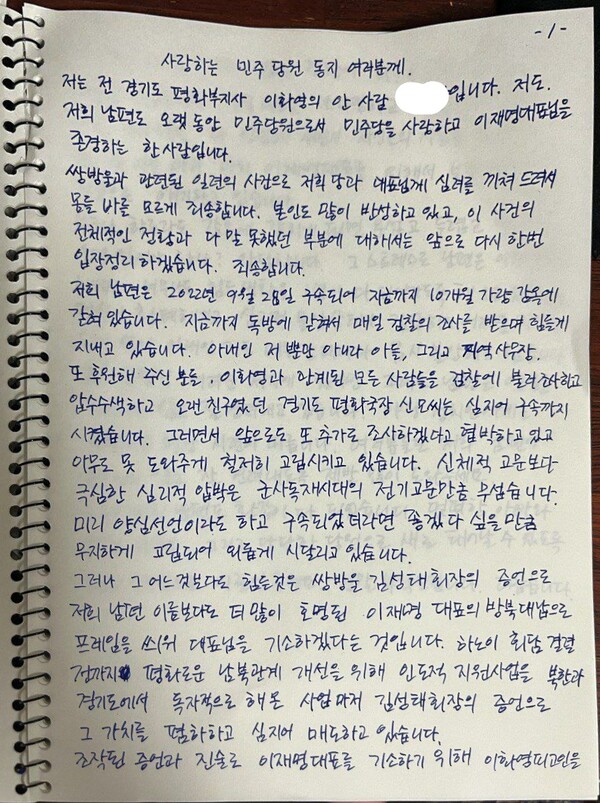 -1-
사랑하는 민주 당원 동지 여러분께.
저는 전 경기도 평화부지사 이화영의 안 사람 입니다. 저도.
저희 남편도 오랫동안 민주당원으로서 민주당을 사랑하고 이재명대표님을
존경하는 한 사람입니다.
쌍방울과 관련된 일련의 사건으로 저희 당과 대표님께 심려를 끼쳐 드려서
몸둘 바를 모르게 죄송합니다. 본인도 많이 반성하고 있고, 이 사건의
전체적인 전황과 다 말 못했던 부분에 대해서는 앞으로 다시 한번
입장정리 하겠습니다. 죄송합니다.
저희 남편은 2022년 9월 28일 구속되어 지금까지 10개월 가량 감옥에
갇혀 있습니다. 지금까지 독방에 갇혀서 매일 검찰의 조사를 받으며 힘들게
지내고 있습니다. 아내인 저 뿐만 아니라 아들, 그리고 지역 사무장.
또 후원해 주신 분들, 이화영과 관계된 모든 사람들을 검찰에 불러 조사하고
압수수색하고 오랜 친구였던 경기도 평화국장 신모씨는 심지어 구속까지
시켰습니다. 그러면서 앞으로도 또 추가로 조사하겠다고 협박하고 있고
아무도 못 도와주게 철저히 고립시키고 있습니다. 신체적 고문보다
극심한 심리적 압박은 군사독재시대의 전기고문만큼 무섭습니다.
미리 양심선언이라도 하고 구속되었더라면 좋겠다 싶을 만큼
무지하게 고립되어 외롭게 시달리고 있습니다.
그러나 그 어느것보다도 힘든것은 쌍방울 김성태회장의 증언으로
저희 남편 이름보다도 더 많이 호명된 이재명 대표의 방북대납으로
프레임을 씌워 대표님을 기소하겠다는 것입니다. 하노이 회담 결렬
전까지 평화로운 남북관계 개선을 위해 인도적 지원사업을 북한과
경기도에서 독자적으로 해온 사업마저 김성태회장의 증언으로
그 가치를 폄하하고 심지어 매도하고 있습니다.
조작된 증언과 진술로 이재명대표를 기소하기 위해 이화영피고인을